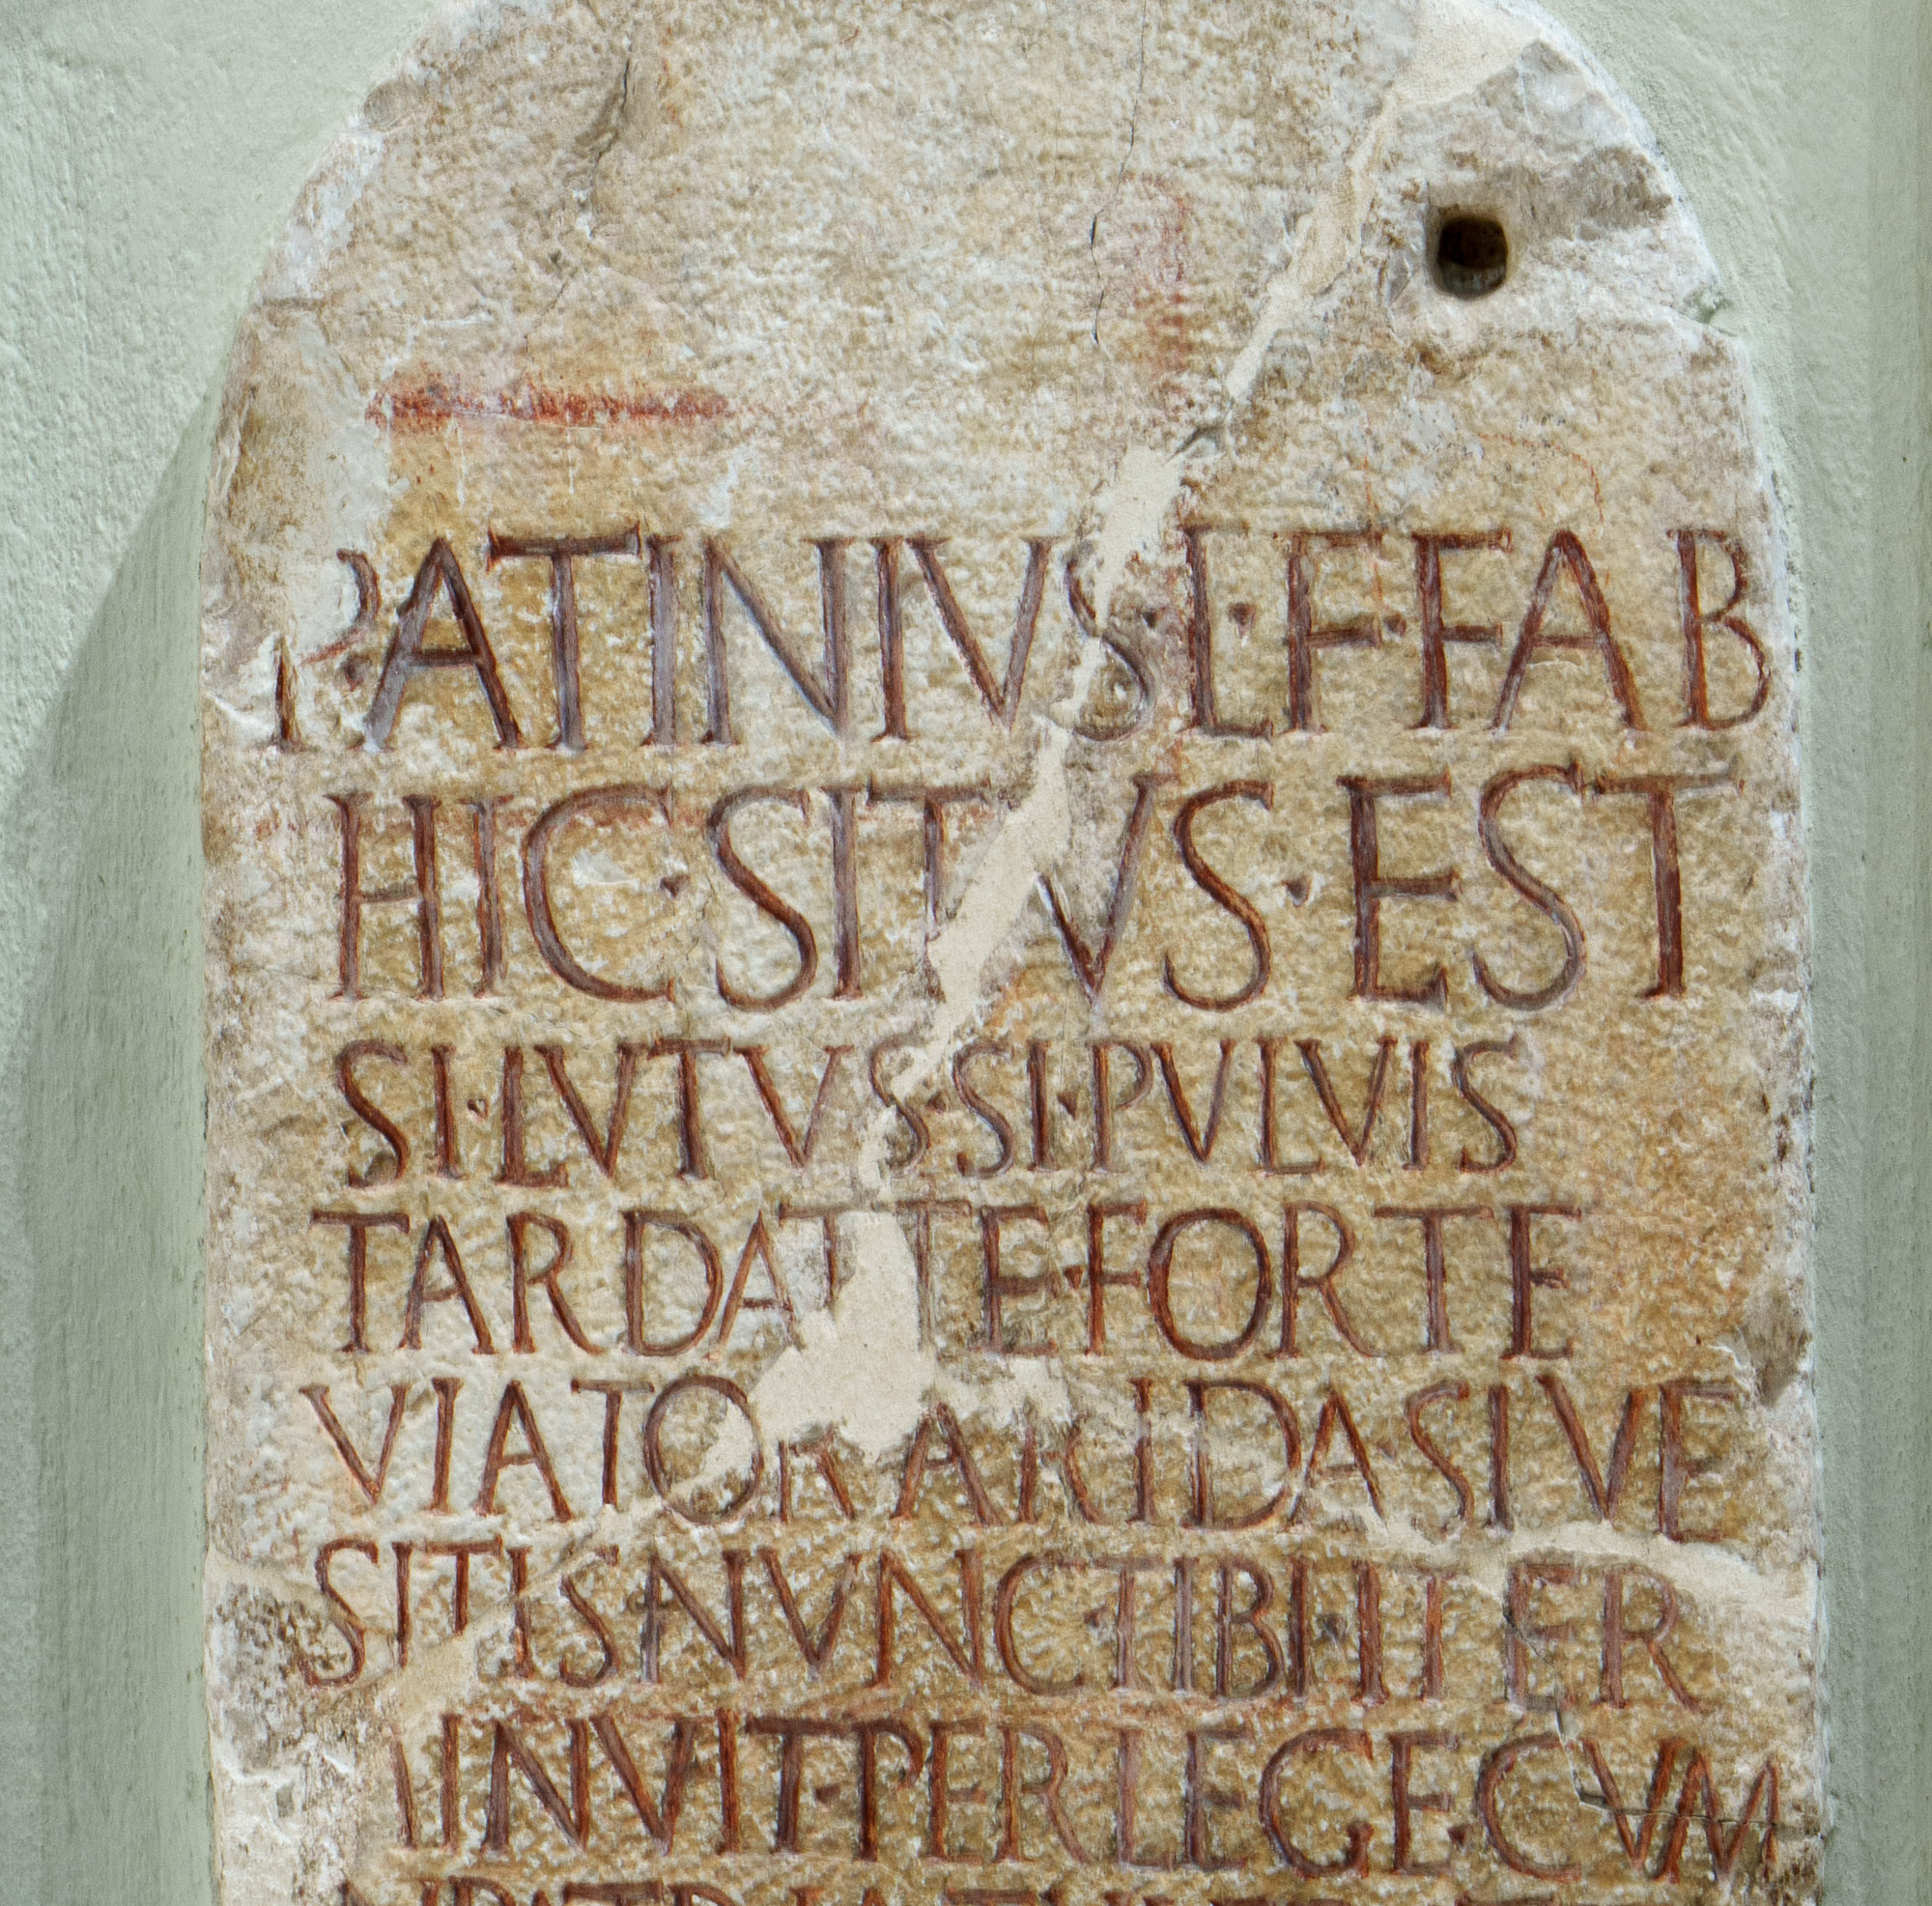 RATINIVS·L·F·FAB
HIC·SITVS·EST
SI·LVTVS·SI·PVLVIS
TARDAT TE·FORTE
VIATOR ARIDA·SIVE
SITIS NVNC·TIBI·ITER
MINVIT·PERLEGE·CVM